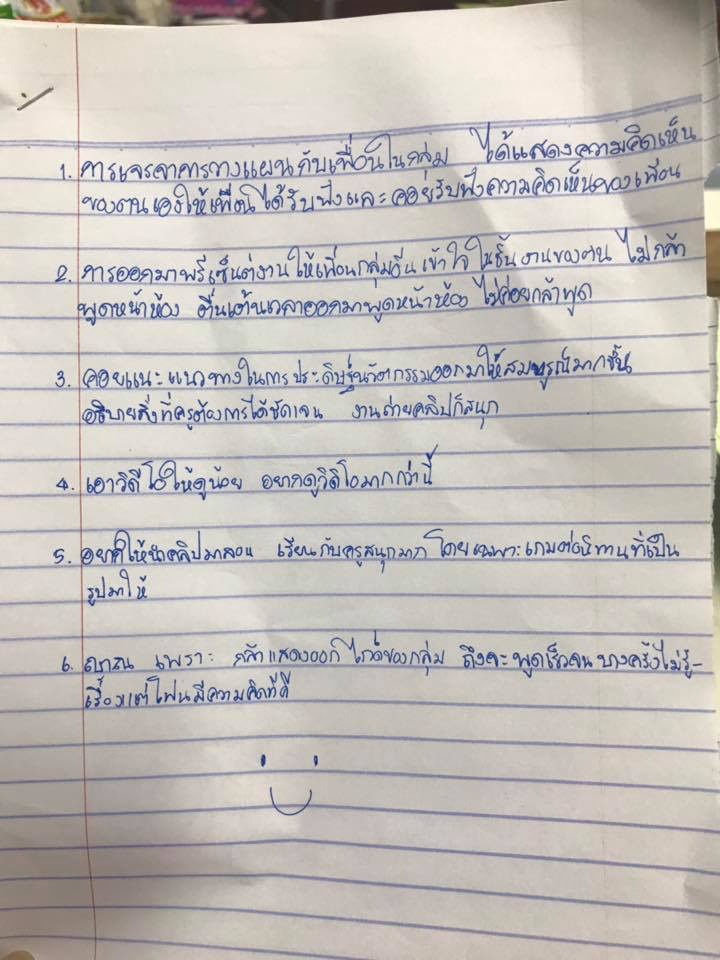 1. การเจรจาการวางแผนกับเพื่อนในกลุ่ม ได้แสดงความคิดเห็น
ของตนเองให้เพื่อนได้รับฟังและคอยรับฟังความคิดเห็นของเพื่อน
2. การออกมาพรีเซ็นต์งานให้เพื่อนกลุ่มอื่นเข้าใจในชิ้นงานของตน ไม่กล้า
พูดหน้าห้อง ตื่นเต้นเวลาออกมาพูดหน้าห้อง ไม่ค่อยกล้าพูด
3. คอยแนะแนวทางในการประดิษฐ์นวัตกรรมออกมาให้สมบูรณ์มากขึ้น
อธิบายสิ่งที่ครูต้องการได้ชัดเจน งานถ่ายคลิปก็สนุก
4. เอาวิดีโอให้ดูน้อย อยากดูวิดีโอมากกว่านี้
5. อยากให้นำคลิปมาสอน เรียนกับครูสนุกมาก โดยเฉพาะเกมต่อนิทานที่เป็น
รูปมาให้
6. เพราะ กล้าแสดงออก ของกลุ่ม ถึงจะพูดเร็วจนบางครั้งไม่รู้-
เรื่องแต่ มีความคิดที่ดี